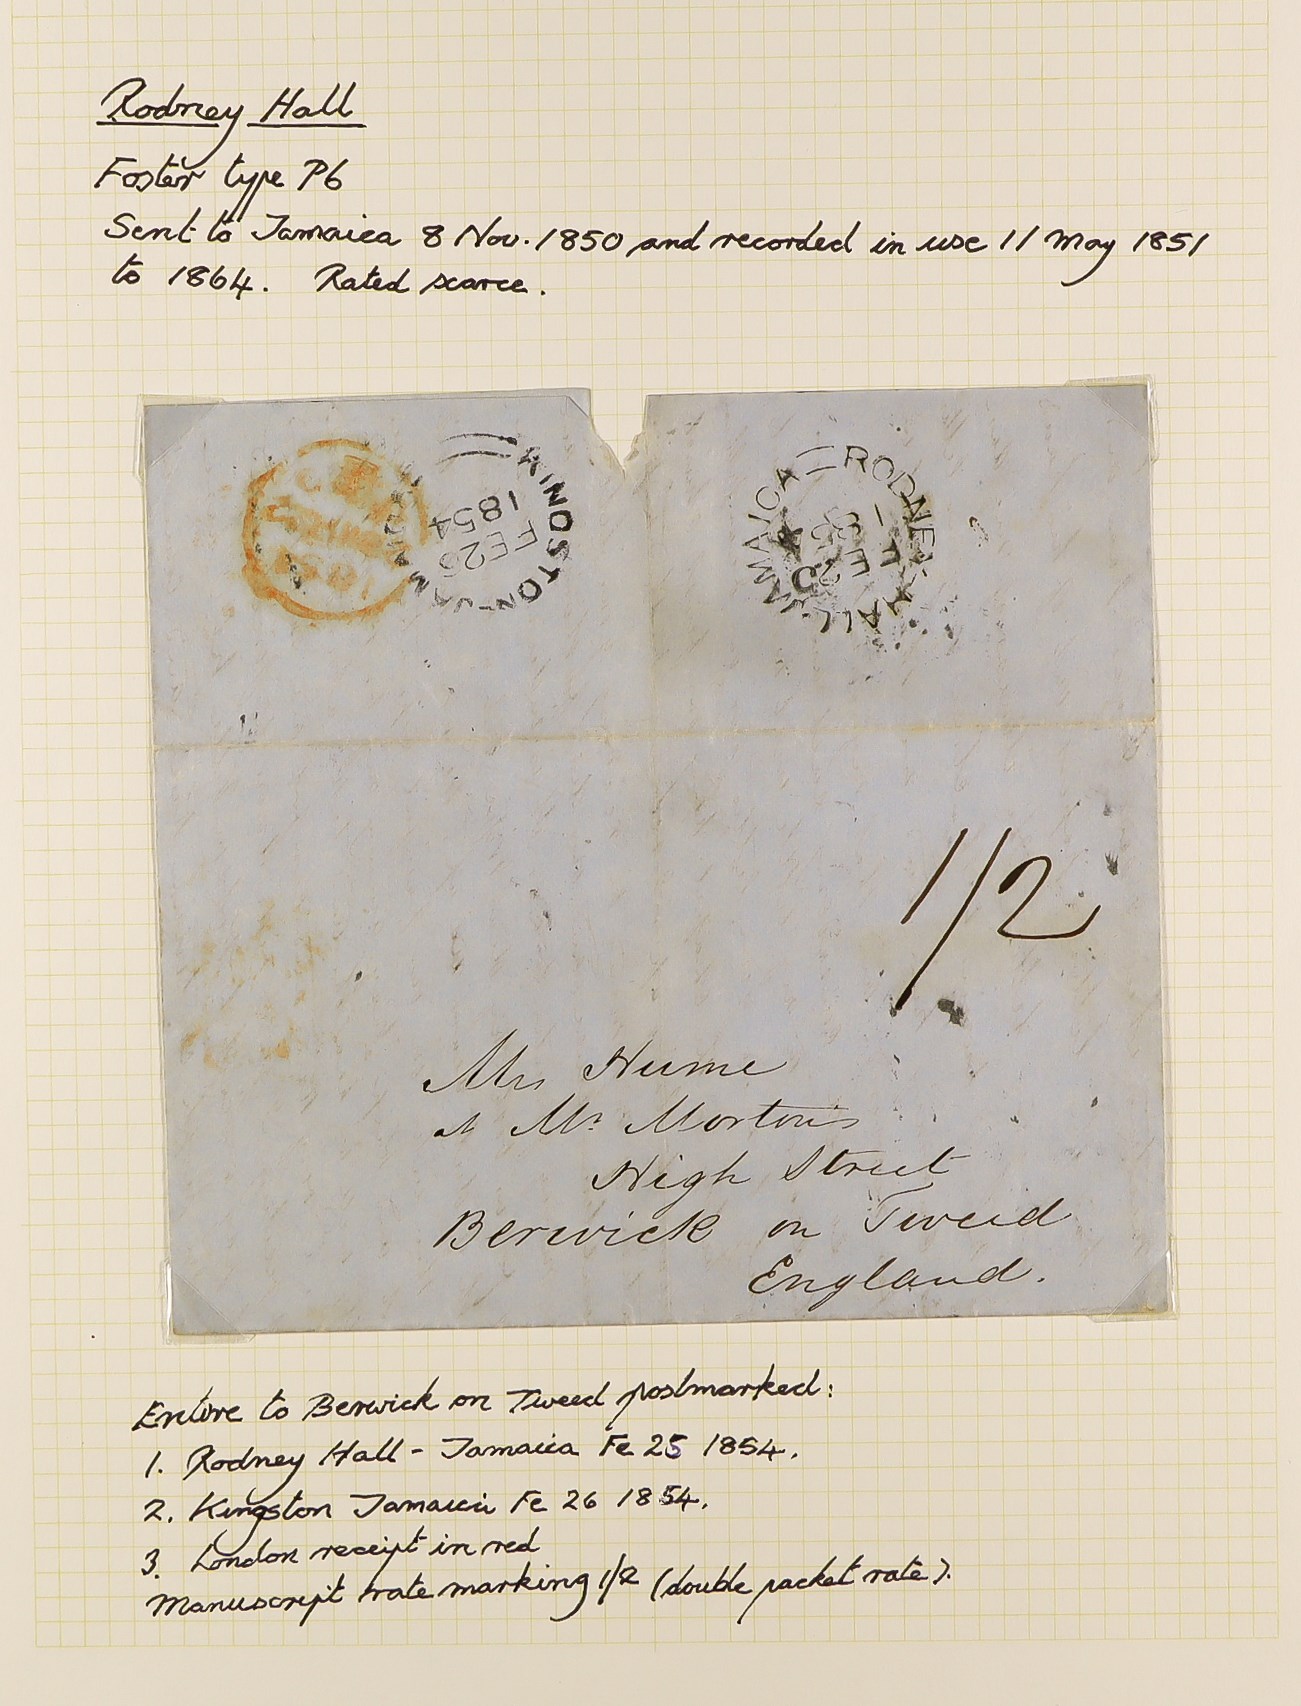 Rodney Hall
Foster type P6
Sent to Jamaica 8 Nov. 1850 and recorded in use 11 May 1851
to 1864. Rated scarce.
KINGSTON-JAMAICA
FE 26
1854
RODNEY-HALL JAMAICA
FE 25
1/2
Mrs Hume
at Mr Morton's
High Street
Berwick on Tweed
England.
Entire to Berwick on Tweed postmarked:
1. Rodney Hall - Jamaica Fe 25 1854.
2. Kingston Jamaica Fe 26 1854.
3. London receipt in red
Manuscript rate marking 1/2 (double packet rate).